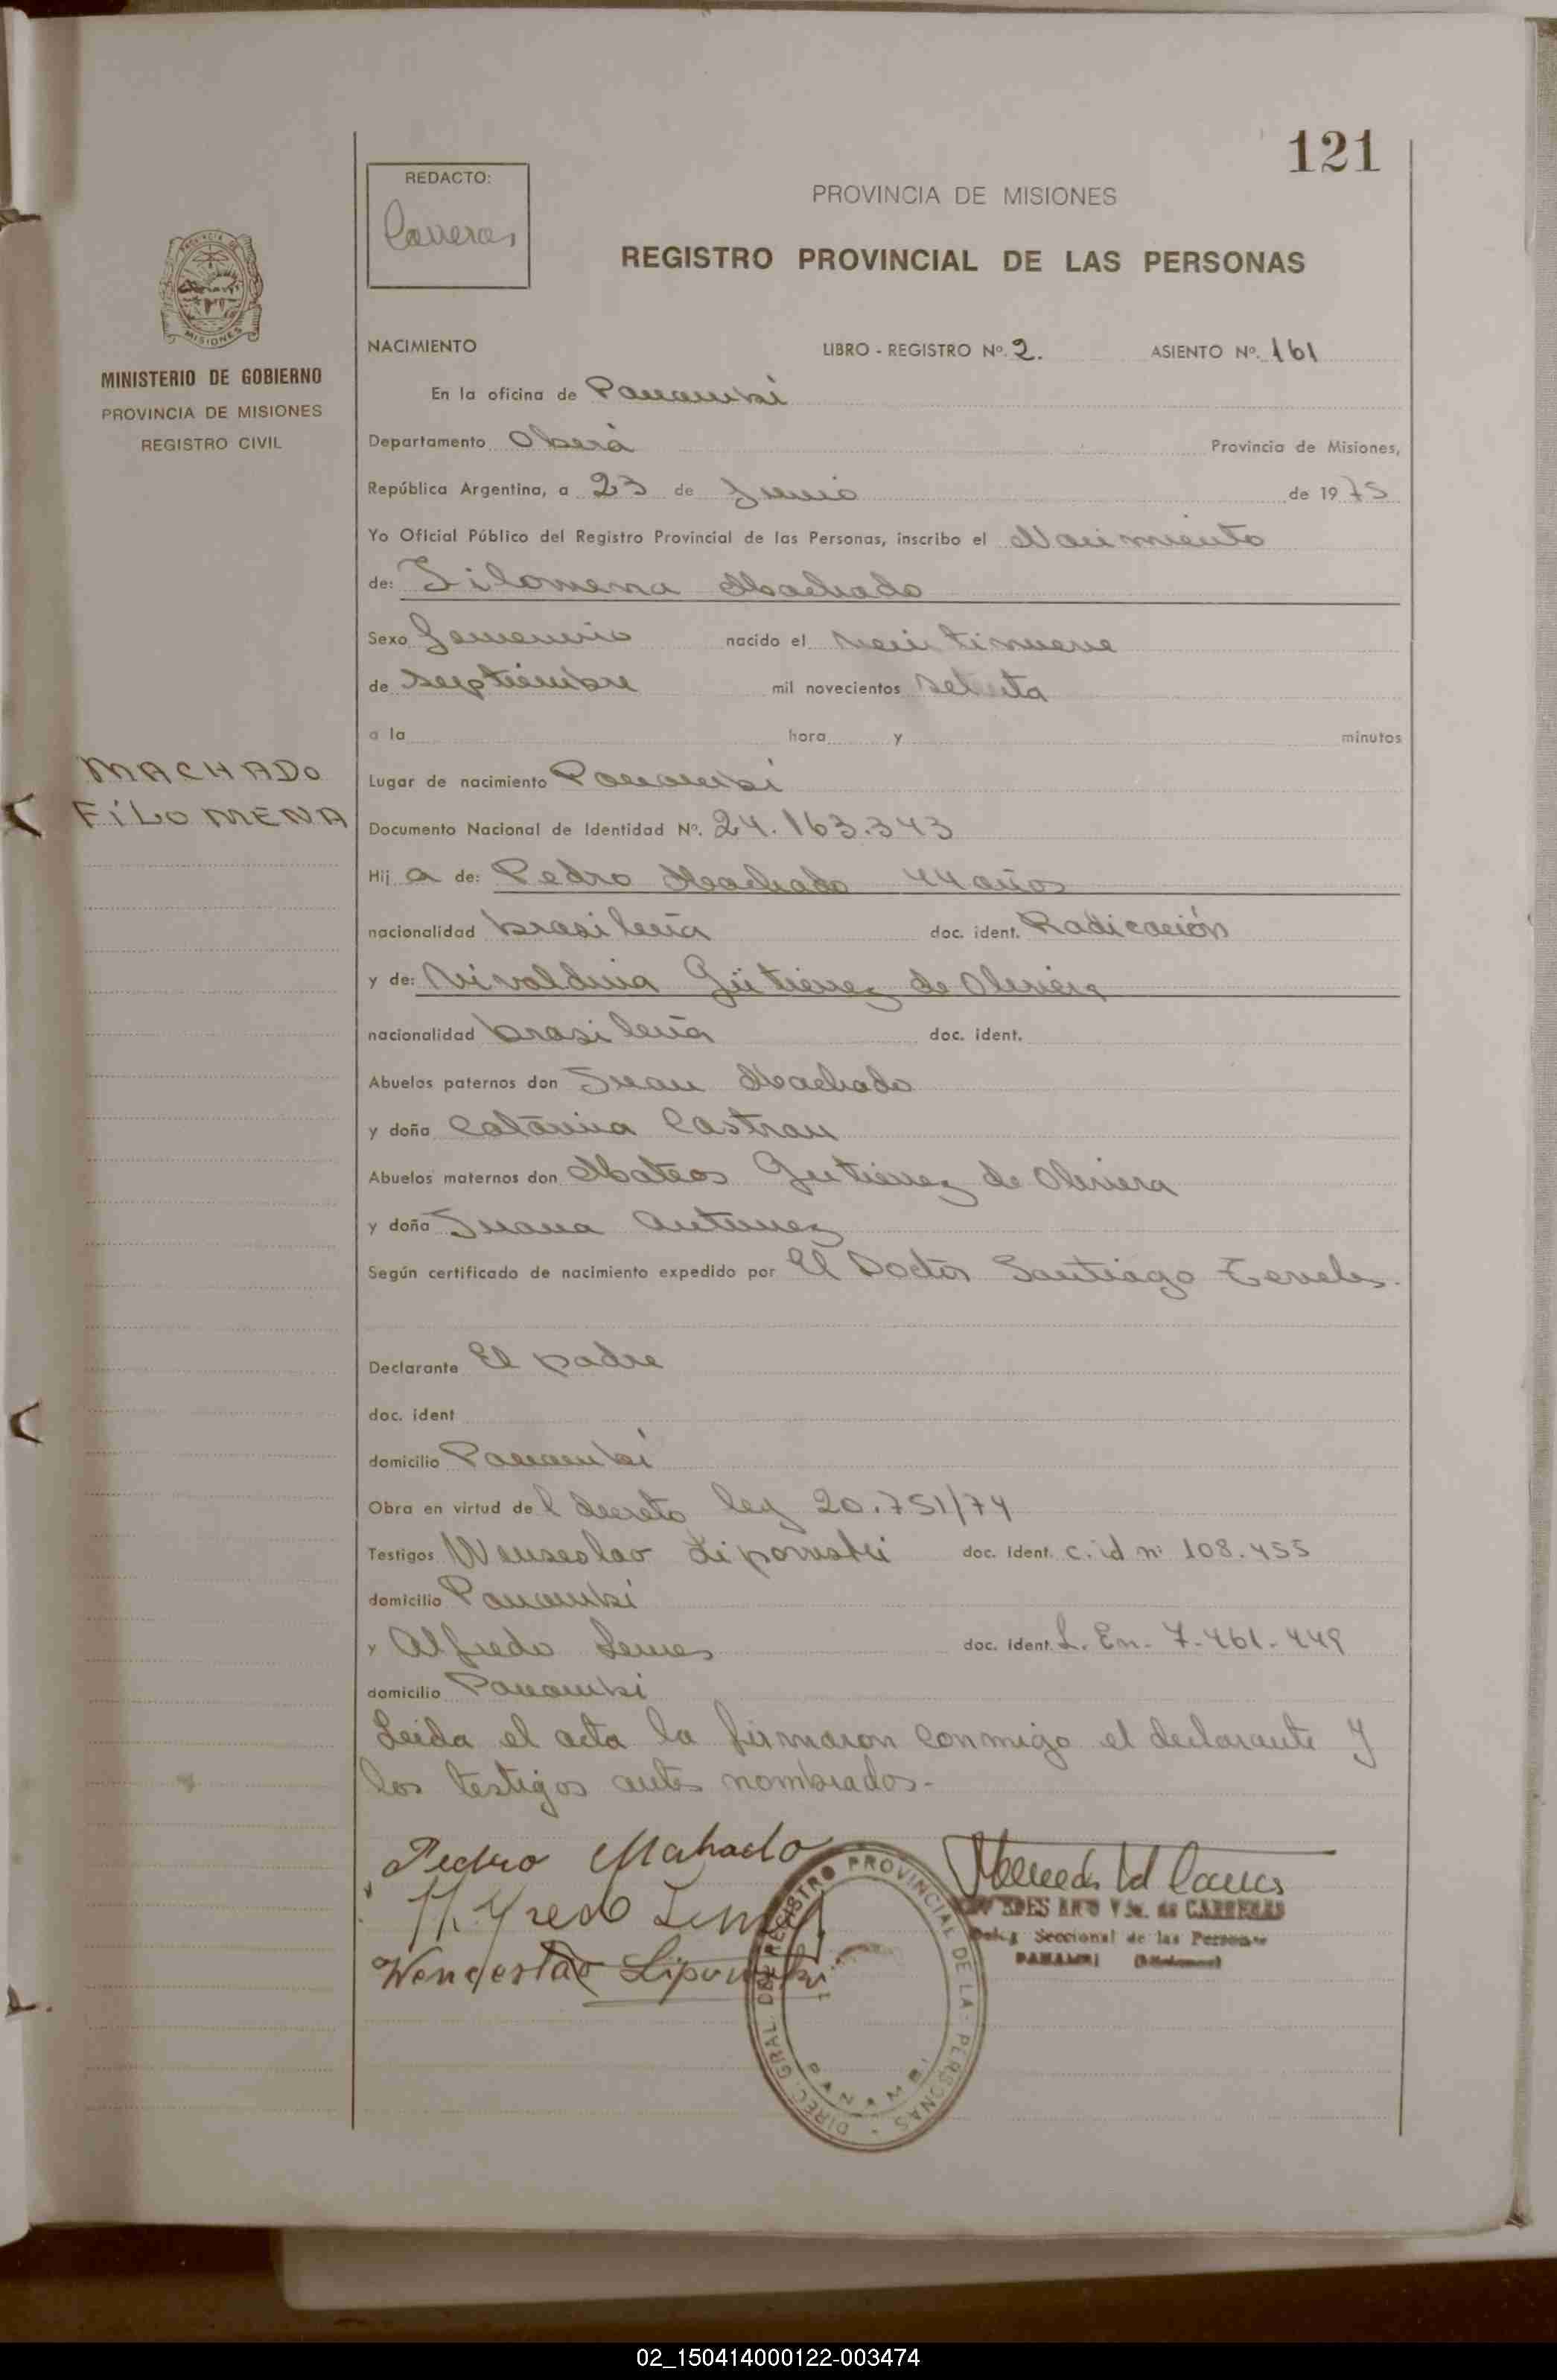 121
REDACTO:
Carreras
PROVINCIA DE MISIONES
REGISTRO PROVINCIAL DE LAS PERSONAS
PROVINCIA DE
MISIONES
MINISTERIO DE GOBIERNO
PROVINCIA DE MISIONES
REGISTRO CIVIL
NACIMIENTO LIBRO - REGISTRO Nº. 2. ASIENTO Nº. 161
En la oficina de Panambí
Departamento Oberá Provincia de Misiones,
República Argentina, a 23 de Junio de 1975
Yo Oficial Público del Registro Provincial de las Personas, inscribo el Nacimiento
de: Filomena Machado
Sexo Femenino nacido el veintinueve
de Septiembre mil novecientos setenta
a la hora y minutos
MACHADO
FILOMENA
Lugar de nacimiento Panambí
Documento Nacional de Identidad Nº. 24.163.343
Hij a de: Pedro Machado 44 años
nacionalidad brasileña doc. ident. Radicación
y de: Nivaldina Gutierrez de Oliviera
nacionalidad brasileña doc. ident.
Abuelos paternos don Juan Machado
y doña Catarina Castrau
Abuelos maternos don Mateos Gutierrez de Oliviera
y doña Juana Antunez
Según certificado de nacimiento expedido por El Doctor Santiago
Declarante El padre
doc. ident
domicilio Panambí
Obra en virtud de l decreto ley 20.751/74
Testigos Wenseslao Liponski doc. Ident. c. id nº 108.455
domicilio Panambí
y Alfredo Lemes doc. Ident. L. En. 7.461.449
domicilio Panambi
Leida el acta la firmaron conmigo el declarante y
los testigos antes nombrados.-
Pedro Mahado
DIREC. GRAL. DEL REGISTRO PROVINCIAL DE LAS PERSONAS -
PANAMBI
Vda. de CARRERAS
Deleg. Seccional de las Personas
PANAMBI (Misiones)
02_150414000122-003474